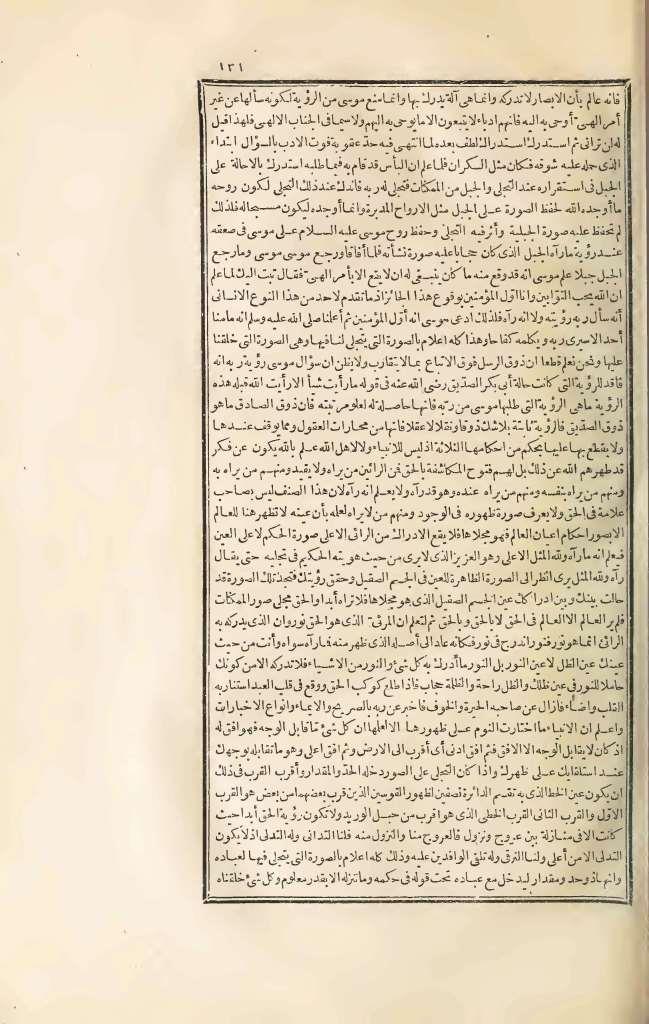 ١٣١
فانه عالم بأن الابصار لا تدركه وانما هى آلة يدرك بها وانما منع موسى من الرؤية لكونه سألها عن غير
أمر الهىّ أوحى به اليه فانهم ادباء لا يتبعون الا ما يوحى به اليهم ولا سيما فى الجناب الالهى فلهذا قيل
له لن ترانى ثم استدرك استدراك لطف بعبده لما انتهى فيه حدّ عقوبة فوت الادب بالسؤال ابتداء
الذى حمله عليه شوقه فكان مثل السكران فلما علم ان اليأس قد قام به فيما طلبه استدرك بالاحالة على
الجبل فى استقراره عند التجلى والجبل من الممكنات فتجلى له ربه فاندك عند ذلك التجلى لكون روحه
ما أوجده الله لحفظ الصورة على الجبل مثل الارواح المدبرة وانما أوجده ليكون مسبحا له فلذلك
لم تحفظ عليه صورة الجبلية وأثر فيه التجلى وحفظ روح موسى عليه السلام على موسى فى صعقه
عند رؤية ما رآه الجبل الذى كان حجابا عليه صورة نشأته فلما أفاق ورجع موسى موسى وما رجع
الجبل جبلا علم موسى انه قد وقع منه ما كان ينبغى له ان لا يقع الا بأمر الهىّ فقال تبت اليك لما علم
ان الله يحب التوّابين وانا اوّل المؤمنين بوقوع هذا الجائز اذ ما تقدم لاحد من هذا النوع الانسانى
أنه سأل ربه رؤيته ولا انه رآه فلذلك ادعى موسى انه أوّل المؤمنين ثم أعلمنا صلى الله عليه وسلم انه ما منا
أحد الا سيرى ربه ويكلمه كفاحا وهذا كله اعلام بالصورة التى يتجلى لنا فيها وهى الصورة التى خلقنا
عليها ونحن نعلم قطعا ان ذوق الرسل فوق الاتباع بما لا يتقارب ولا يظن ان سؤال موسى رؤية ربه انه
فاقد للرؤية التى كانت حالة أبى بكر الصدّيق رضى الله عنه فى قوله ما رأيت شيأ الا رأيت الله قبله هذه
الرؤية ما هى الرؤية التى طلبها موسى من ربه فانها حاصلة له لعلوّ مرتبته فان ذوق الصادق ما هو
ذوق الصدّيق فالرؤية ثابتة بلا شك ذوقا ونقلا لا عقلا فانها من محارات العقول ومما يوقف عندها
ولا يقطع بها عليها بحكم من احكامها الثلاثة اذ ليس للانبياء ولا لاهل الله علم بالله يكون عن فكر
قد طهرهم الله عن ذلك بل لهم فتوح المكاشفة بالحق فمن الرائين من يراه ولا يقيد ومنهم من يراه به
ومنهم من يراه بنفسه ومنهم من يراه عنده وهو قد رآه ولا يعلم انه رآه لان هذا الصنف ليس بصاحب
علامة فى الحق ولا يعرف صورة ظهوره فى الوجود ومنهم من لا يراه لعلمه بأن عينه لا تظهر هنا للعالم
الا بصور احكام اعيان العالم فهو مجلاها فلا يقع الادراك من الرائى الا على صورة الحكم لا على العين
فيعلم انه ما رآه ولله المثل الاعلى وهو العزيز الذى لا يرى من حيث هويته الحكيم فى تجليه حتى يقال
رآه ولله المثل يرى انظر الى الصورة الظاهرة للعين فى الجسم الصقيل وحقق رؤيتك فتجد تلك الصورة قد
حالت بينك وبين ادراك عين الجسم الصقيل الذى هو مجلاها فلا تراه أبدا والحق مجلى صور الممكنات
فلم ير العالم الا العالم فى الحق لا بالحق وبالحق ثم لتعلم ان المرئىّ الذى هو الحق نور وان الذى يدركه به
الرائى انما هو نور فنور اندرج فى نور فكانه عاد الى أصله الذى ظهر منه فما رآه سواه وأنت من حيث
عينك عين الظل لا عين النور بل النور ما أدرك به كل شئ والنور من الاشياء فلا تدركه الا من كونك
حاملا للنور فى عين ظلك والظل راحة والظلمة حجاب فاذا طلع كوكب الحق ووقع فى قلب العبد استنار به
القلب واضاء فأزال عن صاحبه الحيرة والخوف فاخبر عن ربه بالصريح والايماء وانواع الاخبارات
واعلم ان الانبياء ما اختارت النوم على ظهورها الا لعلمها ان كل شئ ما قابل الوجه فهو افق له
اذ كان لا يقابل الوجه الا الافق فثم افق ادنى أى أقرب الى الارض وثم افق اعلى وهو ما تقابله بوجهك
عند استلقائك على ظهرك واذا كان التجلى على الصور دخله الحدّ والمقدار وأقرب القرب فى ذلك
ان يكون عين الخط الذى به تقسيم الدائرة نصفين لظهور القوسين الذين قرب بعضهما من بعض هو القرب
الاوّل والقرب الثانى القرب الخطى الذى هو أقرب من حبل الوريد ولا تكون رؤية الحق أبدا حيث
كانت الا فى منازلة بين عروج ونزول فالعروج منا والنزول منه فلنا التدانى وله التدلى اذ لا يكون
التدلى الا من أعلى ولنا الترقى وله تلقى الوافدين عليه وذلك كله اعلام بالصورة التى يتجلى فيها لعباده
وانها ذو حد ومقدار ليدخل مع عباده تحت قوله فى حكمه وما ننزله الا بقدر معلوم وكل شئ خلقناه